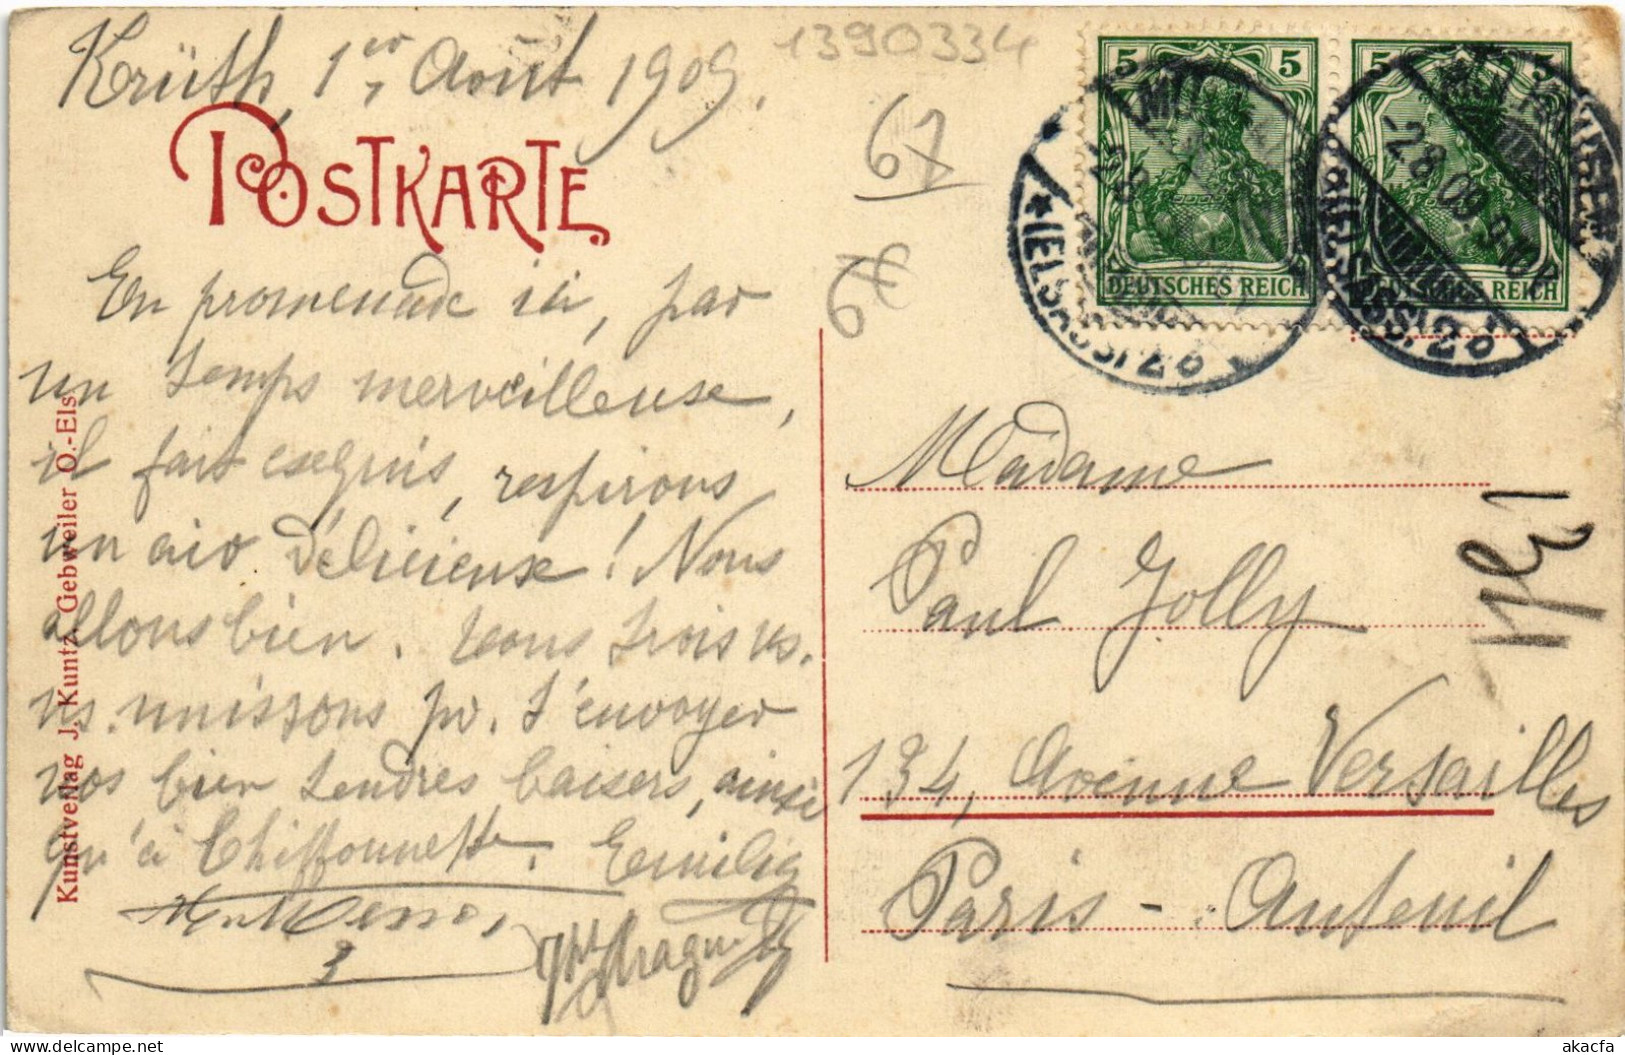 1390334
Krüth, 1er Août 1909.
POSTKARTE
67
6€
5 5
DEUTSCHES REICH
5 5
DEUTSCHES REICH
MÜLHAUSEN
-2.8.09. 9-10
*(ELSASS) 2b
(ELSASS) 2b
En promenade ici, par
un temps merveilleuse,
il fait exquis, respirons
un air délicieuse! Nous
allons bien. tous trois ns.
ns. unissons pr. t'envoyer
nos bien tendres baisers, ainsi
qu'à Chiffonnette. Emilie
Madame
Paul Jolly
134, Avenue Versailles
Paris - Auteuil
Kunstverlag J. Kuntz, Gebweiler O.-Els
akacfa